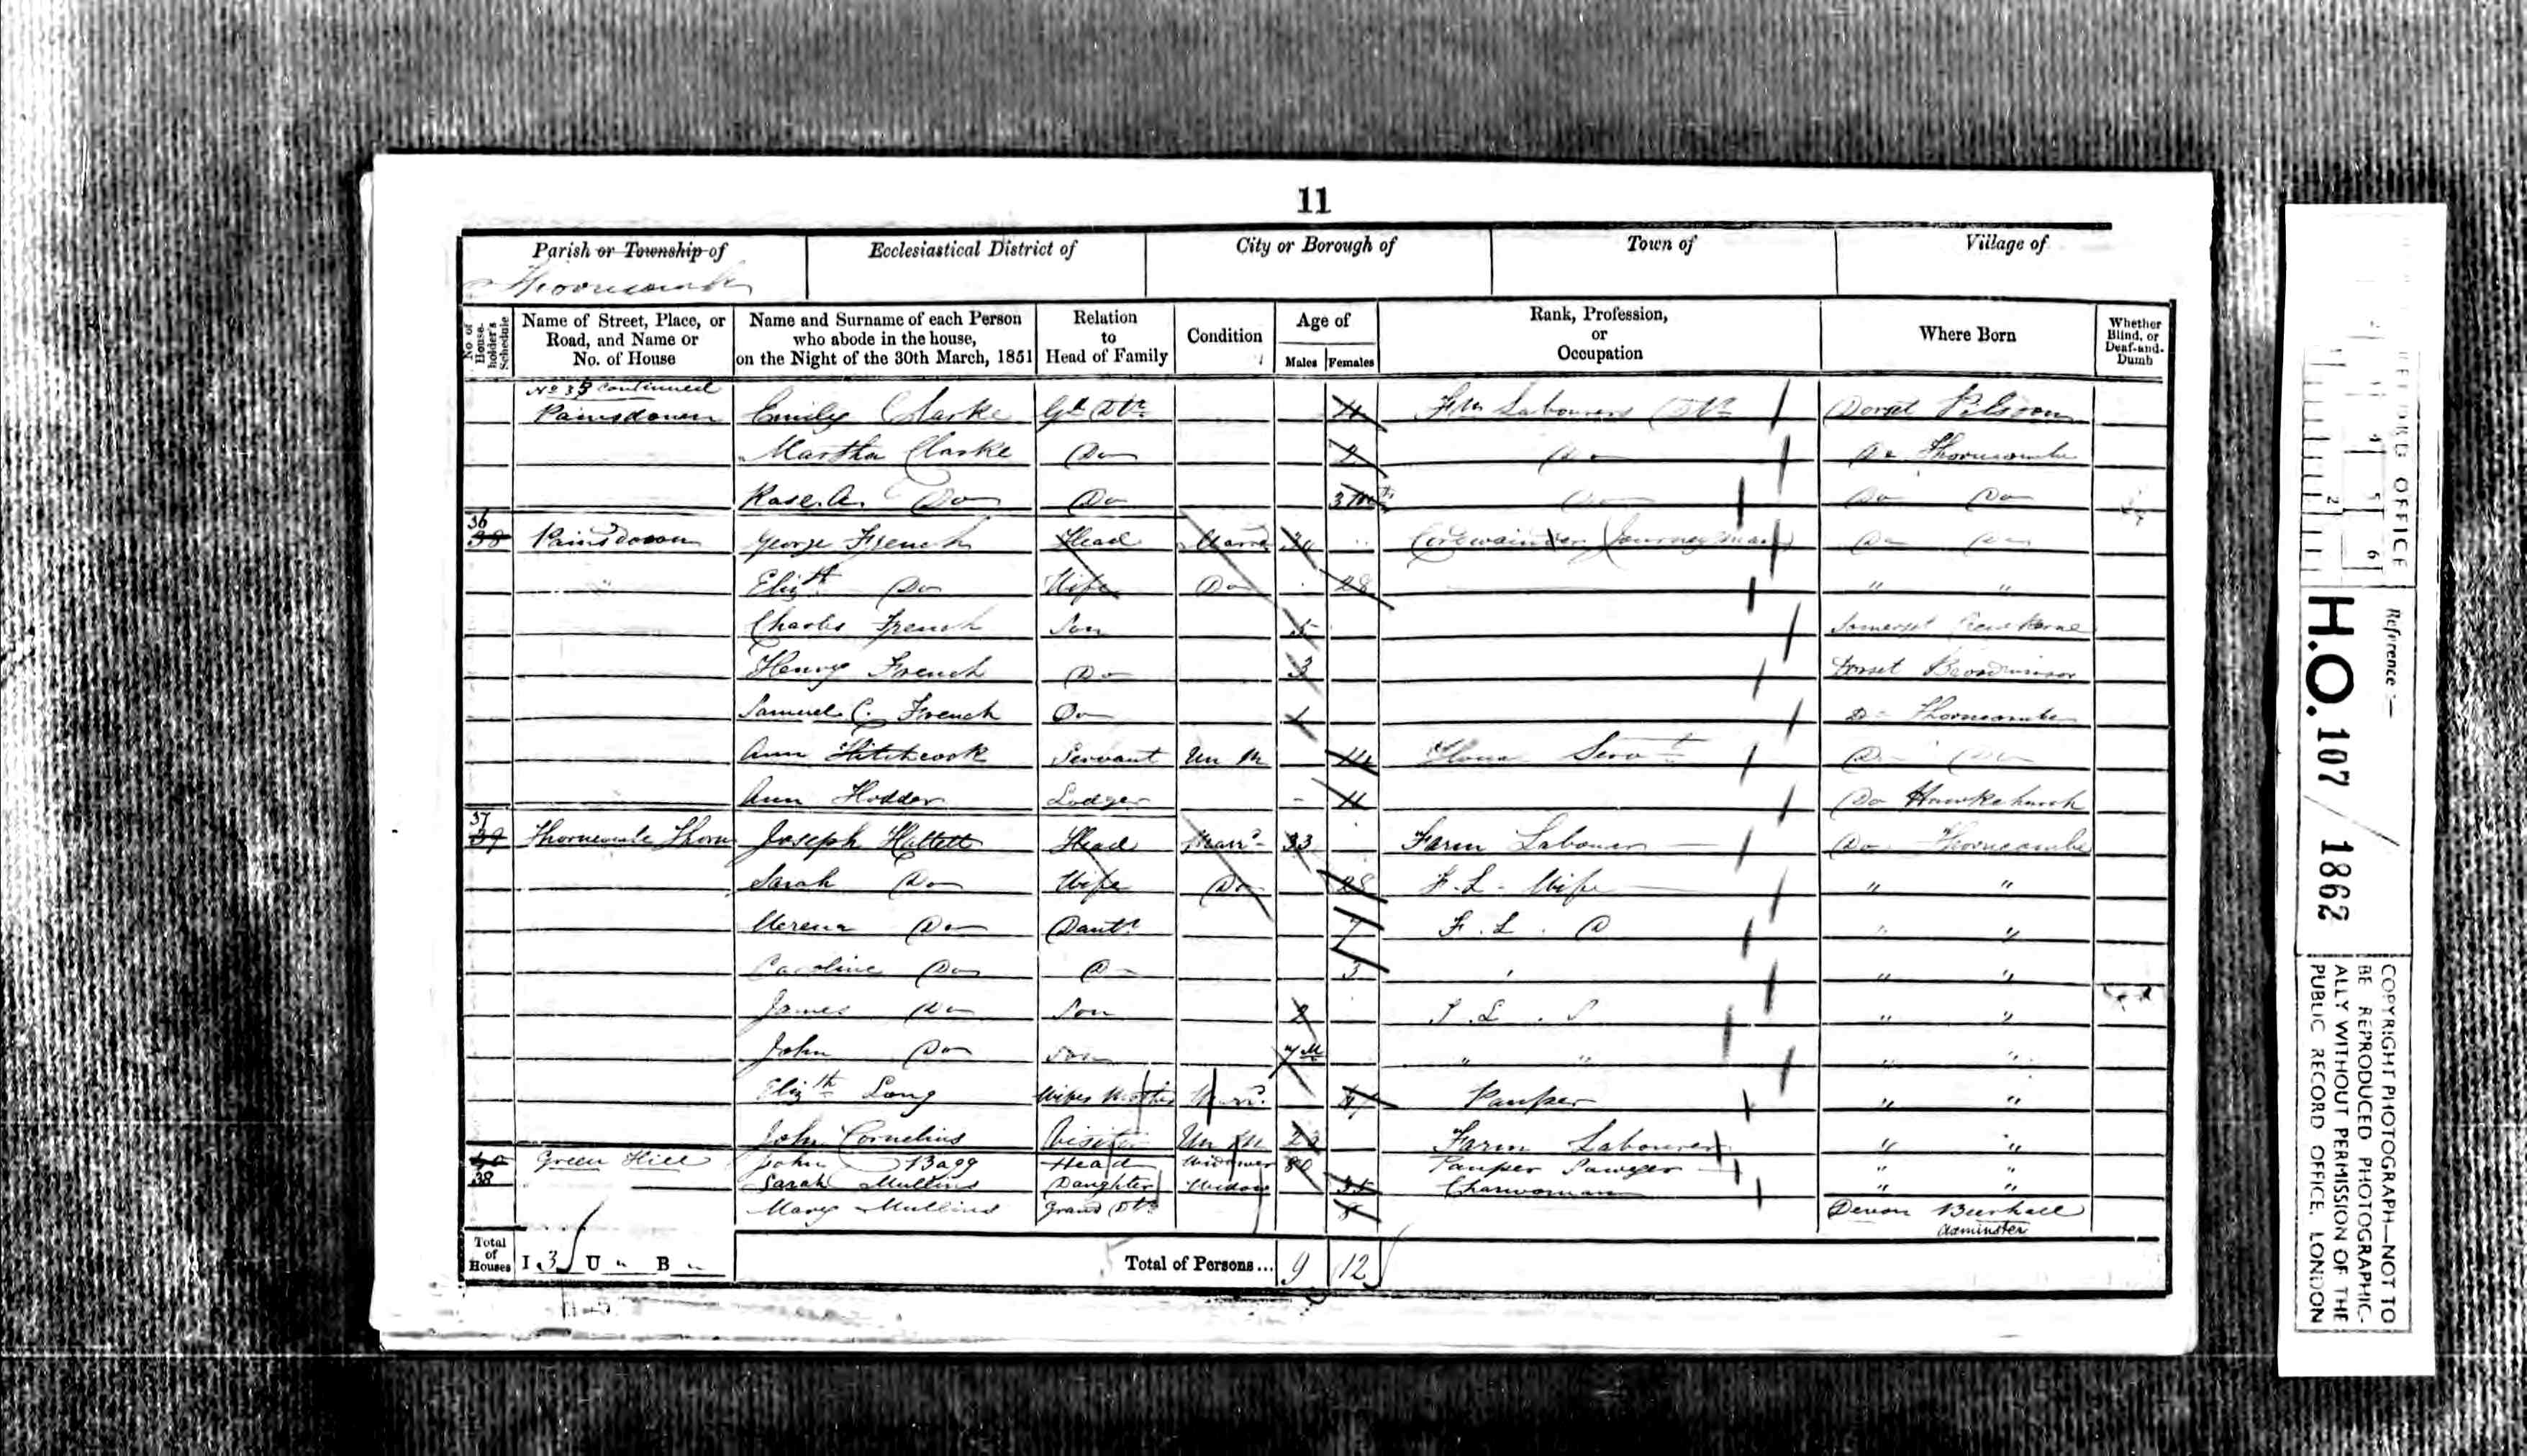 11
Parish or Township of Ecclesiastical District of City or Borough of Town of Village of
Thorncombe
No. of House-holder's Schedule Name of Street, Place, or Road, and Name or No. of House Name and Surname of each Person who abode in the house, on the Night of the 30th March, 1851 Relation to Head of Family Condition Age of Males Females Rank, Profession, or Occupation Where Born Whether Blind, or Deaf-and-Dumb
No 35 Continued
Painsdown Emily Clarke Gd Dtr 4 Fm Labourers Dtr Dorset Pilsdon
Martha Clarke Do 2 Do Do Thorncombe
Rose. A. Do Do 3 Mts Do Do Do
36 38 Painsdown George French Head Marrd Cordwainder Journeyman Do Do
" Elizth Do Wife Do 28 " "
Charles French Son 5 Somerset Crewkerne
Henry French Do 3 Dorset Broadwinsor
Samuel C. French Do 1 Do Thorncombe
Ann Hitchcook Servant Un M 14 House Servt Do Do
Ann Hodder Lodger 11 Do Hawkchurch
37 39 Thorncombe Thorn Joseph Hallett Head Marrd 33 Farm Labourer Do Thorncombe
Sarah Do Wife Do 28 F. L. Wife " "
Do Dautr 7 F. L. D " "
Caroline Do Do 3 " " "
James Do Son 2 F. L. S " "
John Do Son 7 M " " " "
Elizth Long Wifes Mother Marrd Pauper " "
John Cornelius Visitor Un M 22 Farm Labourer " "
40 38 Green Hill John Bagg Head Widower 80 Pauper Sawyer " "
Sarah Mullins Daughter Widow 35 Charwoman " "
Mary Mullins Grand Dtr 8 Devon Beerhall
Axminster
Total of Houses I 3 U " B " Total of Persons... 9 12
RECORD OFFICE
Reference :-
H.O. 107 / 1862
COPYRIGHT PHOTOGRAPH—NOT TO
BE REPRODUCED PHOTOGRAPHIC-
ALLY WITHOUT PERMISSION OF THE
PUBLIC RECORD OFFICE, LONDON